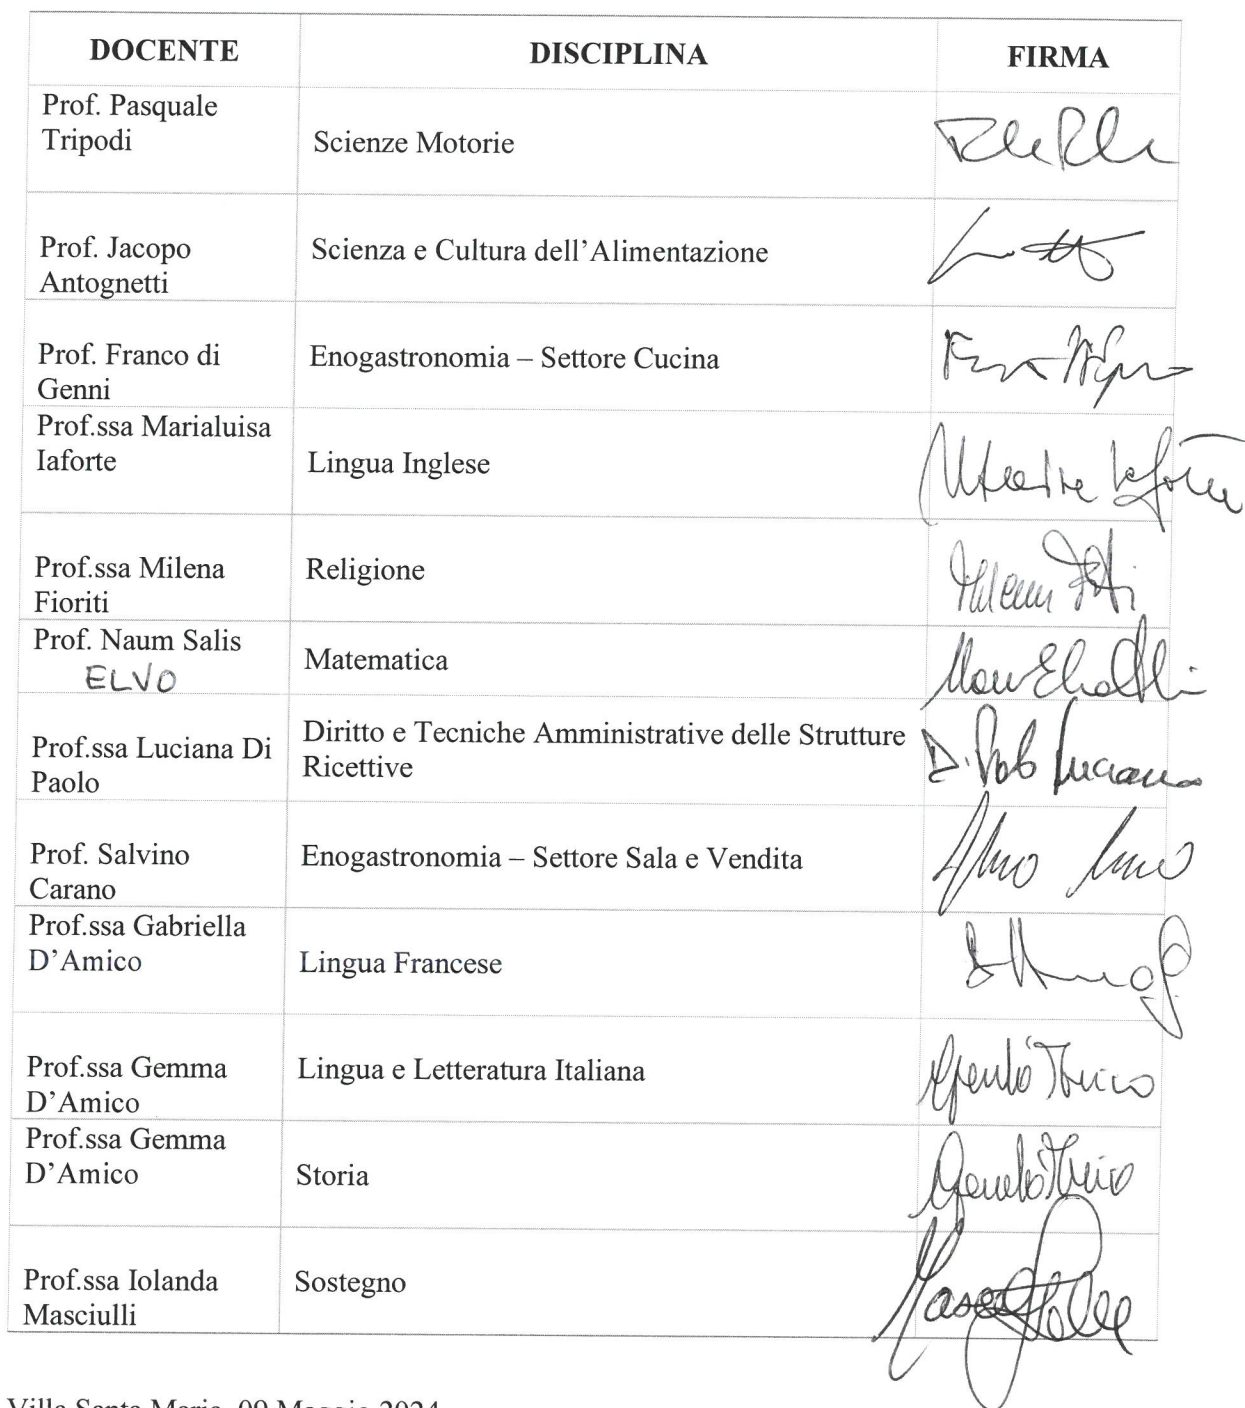 DOCENTE DISCIPLINA FIRMA
Prof. Pasquale
Tripodi
Scienze Motorie
Prof. Jacopo
Antognetti
Scienza e Cultura dell’Alimentazione
Prof. Franco di
Genni
Enogastronomia – Settore Cucina
Prof.ssa Marialuisa
Iaforte
Lingua Inglese
Prof.ssa Milena
Fioriti
Religione
Prof. Naum Salis
ELVO
Matematica
Prof.ssa Luciana Di
Paolo
Diritto e Tecniche Amministrative delle Strutture
Ricettive
D. Paolo Luciana
Prof. Salvino
Carano
Enogastronomia – Settore Sala e Vendita
Prof.ssa Gabriella
D’Amico
Lingua Francese
Prof.ssa Gemma
D’Amico
Lingua e Letteratura Italiana
Prof.ssa Gemma
D’Amico
Storia
Prof.ssa Iolanda
Masciulli
Sostegno
Villa Santa Maria, 09 Maggio 2024